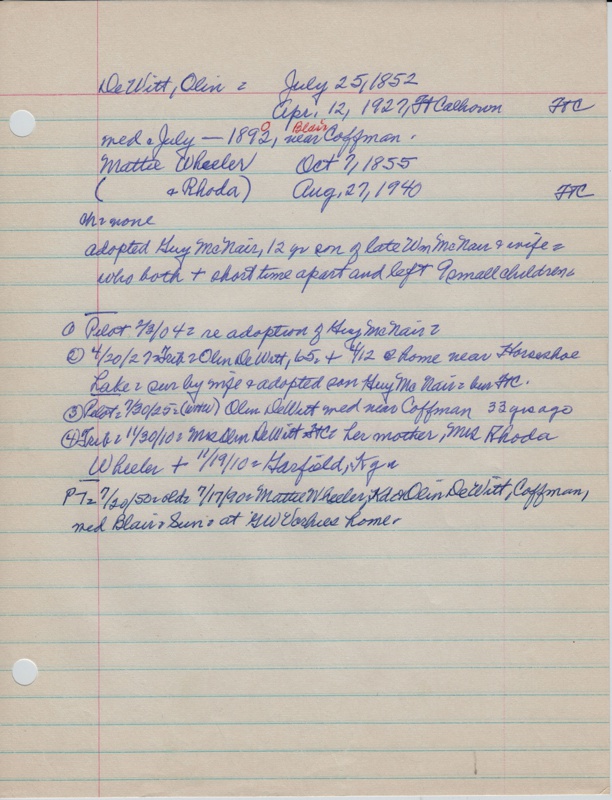 DeWitt, Olin = July 25, 1852
Apr. 12, 1927, Ft Calhoun FtC
med = July — 1892, 0 near Blair Coffman.
Mattie Wheeler Oct 7, 1855
( & Rhoda) Aug, 27, 1940 FTC
ch = none
adopted Guy McNair, 12 yr son of late Wm McNair & wife =
who both + short time apart and left 9 small children.
① Pilot 2/3/04 = re adoption of Guy McNair =
② 4/20/27 = Trib = Olin DeWitt, 65. + 4/12 @ home near Horseshoe
Lake = sur by wife & adopted son Guy McNair = bur FtC.
③ Pilot = 7/30/25 = Olin DeWitt med near Coffman 33 yrs ago
④ Trib = 11/30/10 = Mrs Olin DeWitt FtC = her mother, Mrs Rhoda
Wheeler + 11/19/10 = Garfield,
PT = 7/20/50 = old = 7/17/90 = Mattie Wheeler, Olin DeWitt, Coffman,
med Blair = Sun = at GW Vorhies home.